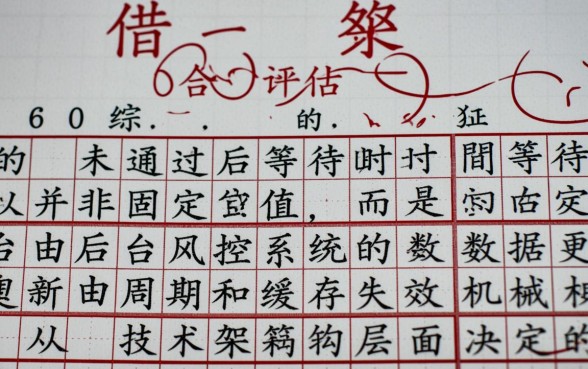 借一
合评估
60综. . 的.
的 未通过后等待时
間等待
以并非固定 值，而是
定
台由后台风控系统的数数据更
新由周期和缓存失效机械
从 技术架 钩层面决定的